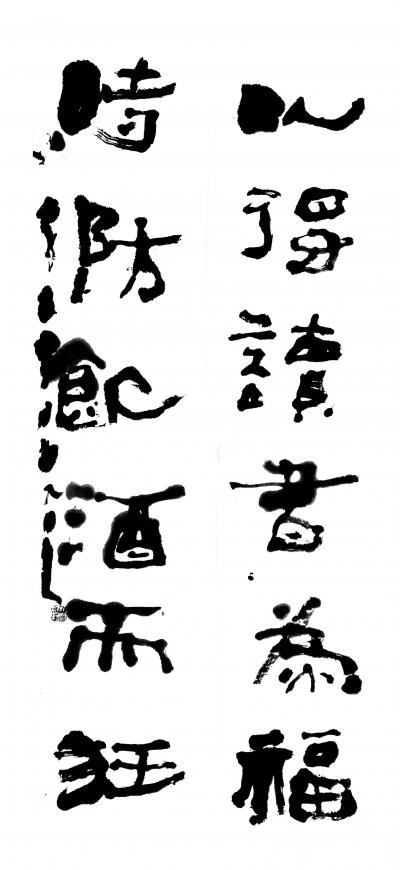 以得讀書為福
時防飲酒而狂